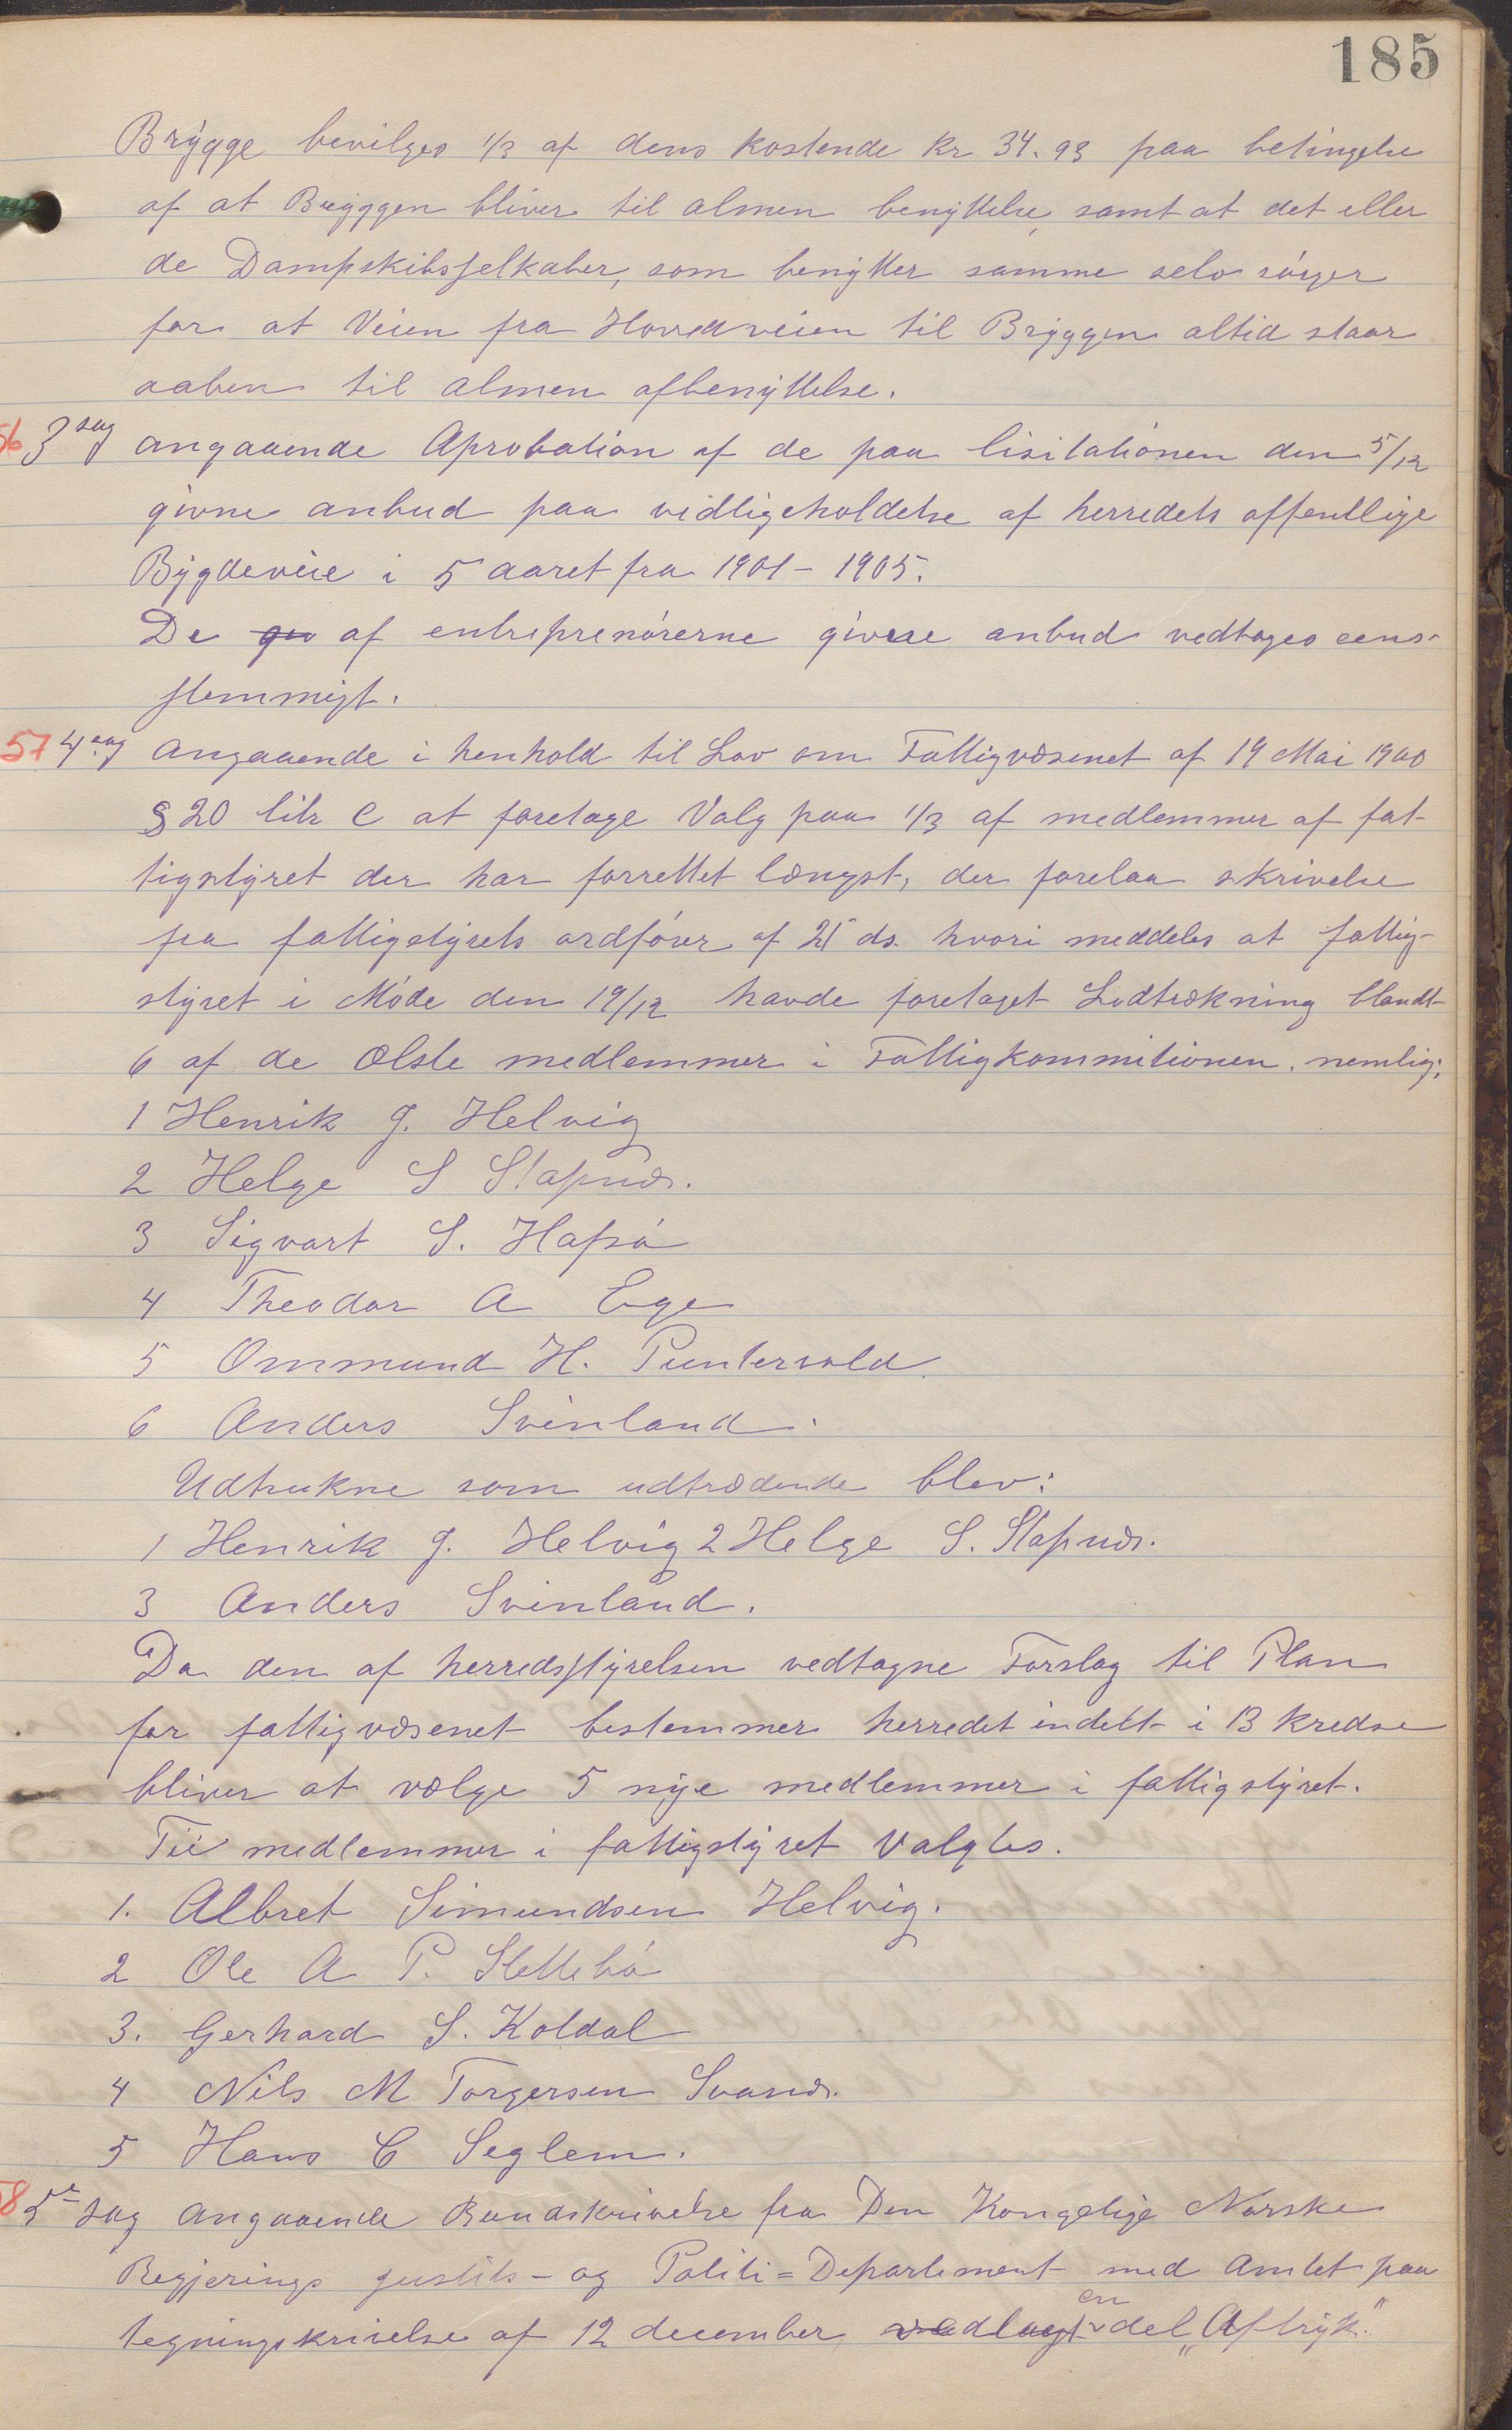 185
Brygge bevilges 1/3 af dens kostende Kr 34.93 paa betingelse
af at Bryggen bliver til almen benyttelse, samt at det eller
de Dampskibsselkaber, som benytter samme selv sørger
for at Veien fra Hovedveien til Bryggen altid staar
aaben til almen afbenyttelse.
56 3 sag angaaende Aprobation af de paa lisitationen den 5/12
givne anbud paa vedligeholdelse af herredets offentlige
Bygdeveie i 5 aaret fra 1901 - 1905.
De af entreprenørerne givne anbud vedtages eens-
stemmigt.
57 4 sag angaaende i henhold til Lov om Fattigvæsenet af 19 Mai 1900
§ 20 litr C at foretage Valg paa 1/3 af medlemmer af fat-
tigstyret der har forrettet længst, der forelaa skrivelse
fra fattigstyrets ordfører af 21 ds. hvori meddeles at fattig-
styret i Møde den 19/12 havde foretaget Lodtrækning blandt
6 af de ælste medlemmer i Fattigkommitionen. nemlig:
1 Henrik J. Helvig
2 Helge S Slapnæs.
3 Sigvart S. Hafsø
4 Theodor A Ege
5 Ommund H. Puntervold
6 Anders Svinland.
Udtrukne som udtrædende blev:
1 Henrik J. Helvig 2 Helge S. Slapnæs.
3 Anders Svinland.
Da den af herredsstyrelsen vedtagne Forslag til Plan
for fattigvæsenet bestemmer herredet indelt i 13 kredse
bliver at vælge 5 nye medlemmer i fattigstyret.
Til medlemmer i fattigstyret valgtes.
1. Albret Simundsen Helvig.
2 Ole A P. Slettebø
3. Gerhard S. Koldal
4 Nils M Torgersen Svanæs.
5 Hans C Seglem.
58 5te sag angaaende Rundskrivelse fra Den Kongelige Norske
Regjerings Justits- og Politi=Departement med Amtet paa
tegningskrivelse af 12 december vedlagt en del „Aftryk"